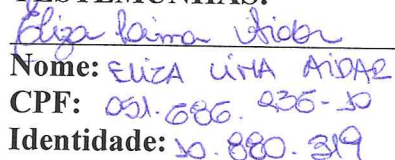 TESTEMUNHAS:
Eliza Lima Aidar
Nome: ELIZA LIMA AIDAR
CPF: 051.686.236-10
Identidade: 10.880.319